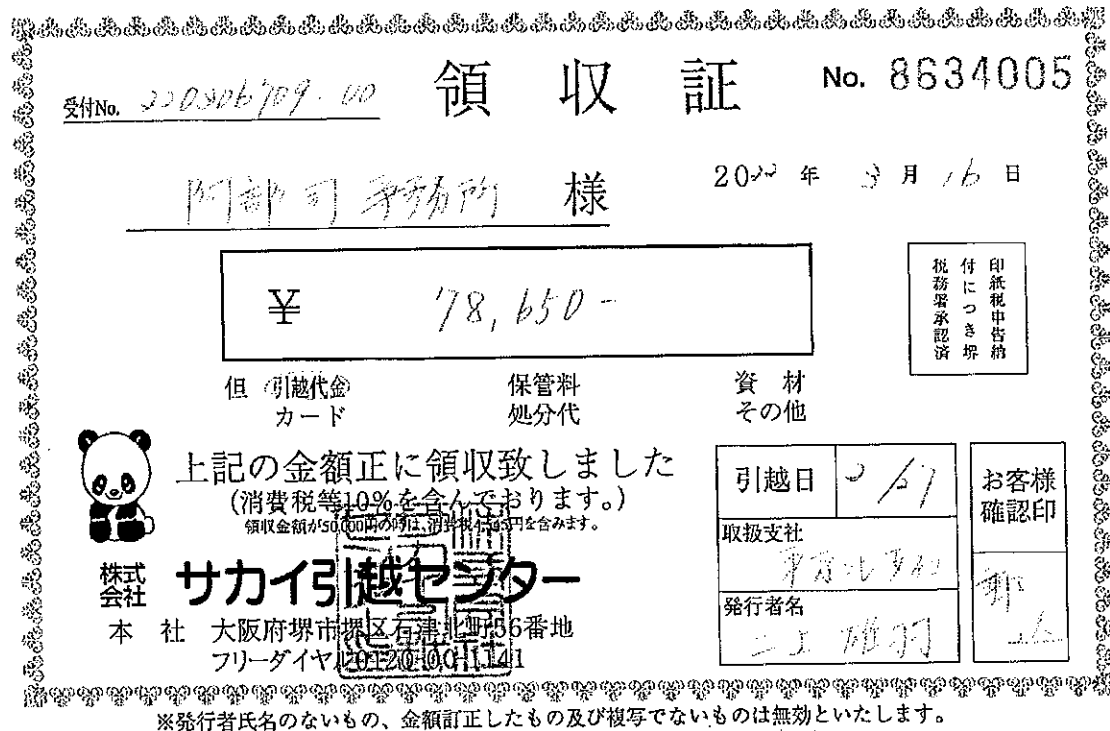 受付No.
領収証
No. 8634005
阿部司事務所 様
2022年 3月 16日
¥ 78,650-
印紙税申告納
付につき堺
税務署承認済
但 引越代金 保管料 資材
カード 処分代 その他
上記の金額正に領収致しました
(消費税等10%を含んでおります。)
領収金額が50,000円の時は、消費税4,545円を含みます。
株式会社 サカイ引越センター
本社 大阪府堺市堺区石津北町56番地
フリーダイヤル0120-00-1141
引越日
取扱支社
発行者名
お客様
確認印
※発行者氏名のないもの、金額訂正したもの及び複写でないものは無効といたします。